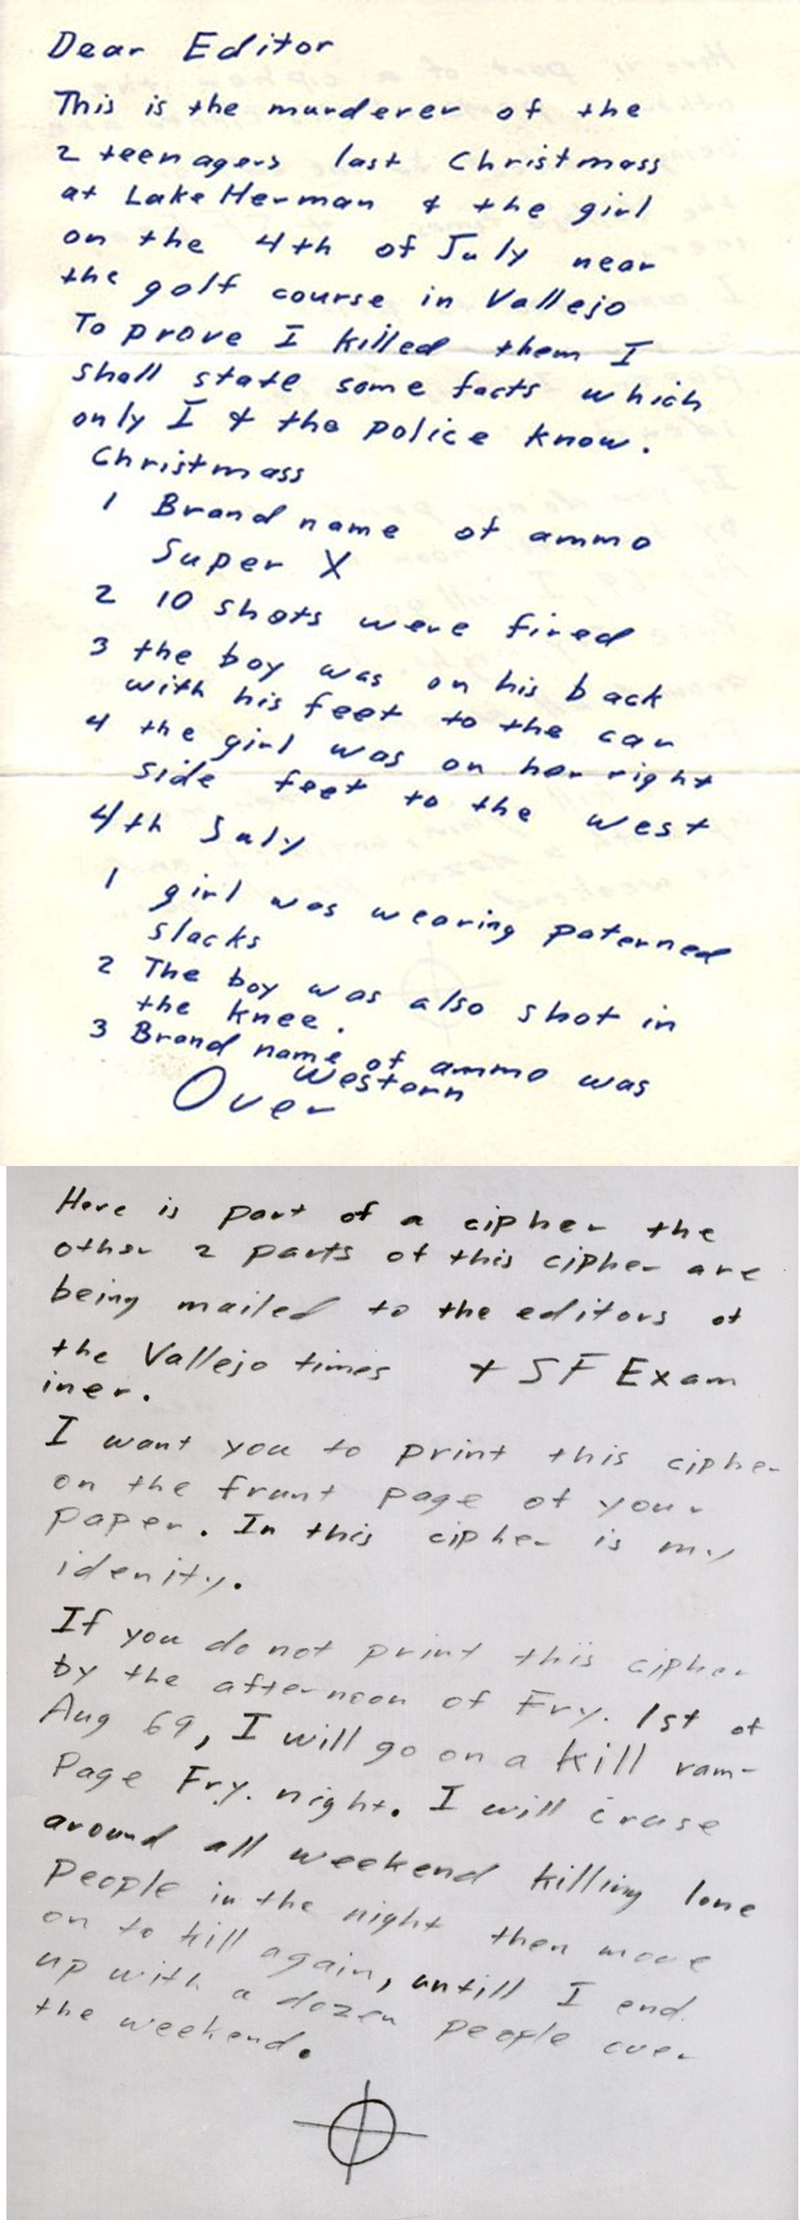 Dear Editor
This is the murderer of the
2 teenagers last Christmass
at Lake Herman & the girl
on the 4th of July near
the golf course in Vallejo
To prove I killed them I
shall state some facts which
only I & the police know.
Christmass
1 Brand name of ammo
Super X
2 10 shots were fired
3 the boy was on his back
with his feet to the car
4 the girl was on her right
side feet to the west
4th July
1 girl was wearing paterned
slacks
2 The boy was also shot in
the knee.
3 Brand name of ammo was
Western
Over
Here is part of a cipher the
other 2 parts of this cipher are
being mailed to the editors of
the Vallejo times + SF Exam
iner.
I want you to print this cipher
on the frunt page of your
paper. In this cipher is my
idenity.
If you do not print this cipher
by the afternoon of Fry. 1st of
Aug 69, I will go on a kill ram-
Page Fry. night. I will cruse
around all weekend killing lone
people in the night then move
on to kill again, untill I end
up with a dozen people over
the weekend.